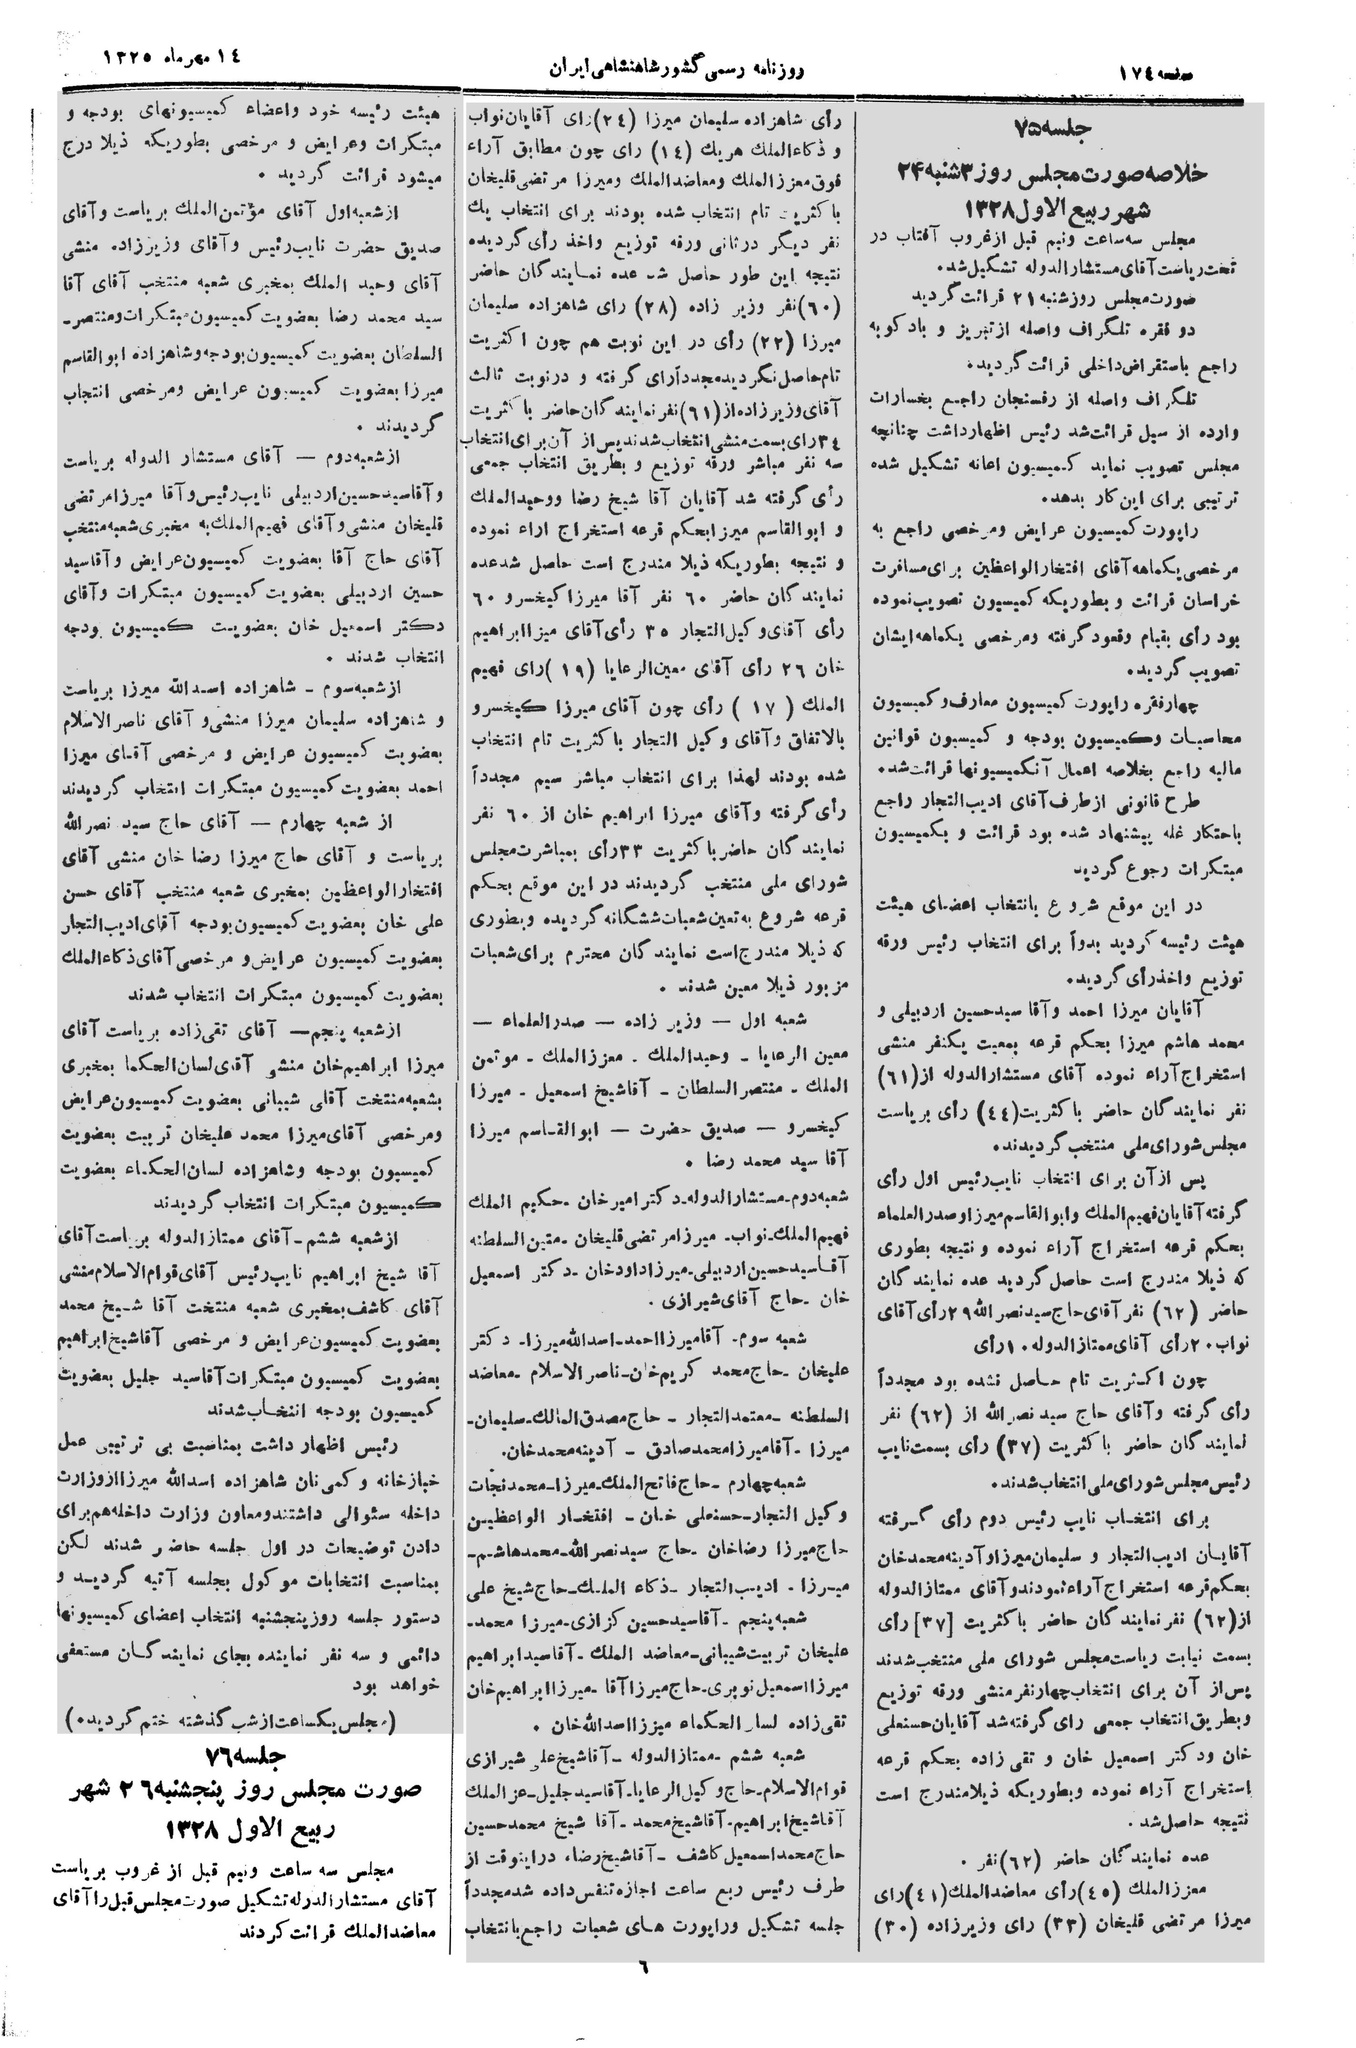 صفحه ۱۷٤
روزنامه رسمی کشور شاهنشاهی ایران
۱٤ مهرماه ۱۳۲٥
جلسه ۷۵
خلاصه صورت مجلس روز ۳شنبه ۲۴
شهر ربیع الاول ۱۳۲۸
مجلس سه ساعت ونیم قبل از غروب آفتاب در
تحت ریاست آقای مستشارالدوله تشکیل شد.
صورت مجلس روز شنبه ۲۱ قرائت گردید
دو فقره تلگراف واصله از تبریز و بادکوبه
راجع باستقراض داخلی قرائت گردید.
تلگراف واصله از رفسنجان راجع بخسارات
وارده از سیل قرائت شد رئیس اظهار داشت چنانچه
مجلس تصویب نماید کمیسیون اعانه تشکیل شده
ترتیبی برای این کار بدهد.
راپورت کمیسیون عرایض ومرخصی راجع به
مرخصی یکماهه آقای افتخار الواعظین برای مسافرت
خراسان قرائت و بطوریکه کمیسیون تصویب نموده
بود رأی بقیام وقعود گرفته ومرخصی یکماهه ایشان
تصویب گردید.
چهار فقره راپورت کمیسیون معارف و کمیسیون
محاسبات و کمیسیون بودجه و کمیسیون قوانین
مالیه راجع بخلاصه اعمال آنکمیسیونها قرائت شد.
طرح قانونی از طرف آقای ادیب التجار راجع
باحتکار غله پیشنهاد شده بود قرائت و بکمیسیون
مبتکرات رجوع گردید
در این موقع شروع بانتخاب اعضای هیئت
هیئت رئیسه گردید بدواً برای انتخاب رئیس ورقه
توزیع واخذ رأی گردید.
آقایان میرزا احمد وآقا سید حسین اردبیلی و
محمد هاشم میرزا بحکم قرعه بمعیت یکنفر منشی
استخراج آراء نموده آقای مستشارالدوله از (٦۱)
نفر نمایندگان حاضر باکثریت (٤٤) رأی بریاست
مجلس شورای ملی منتخب گردیدند.
پس از آن برای انتخاب نایب رئیس اول رأی
گرفته آقایان فهیم الملك وابوالقاسم میرزا وصدرالعلماء
بحکم قرعه استخراج آراء نموده و نتیجه بطوری
که ذیلا مندرج است حاصل گردید عده نمایندگان
حاضر (٦۲) نفر آقای حاج سید نصرالله ۲۹ رأی آقای
نواب ۲۰ رأی آقای ممتازالدوله ۱۰ رأی
چون اکثریت تام حاصل نشده بود مجدداً
رأی گرفته وآقای حاج سید نصرالله از (٦۲) نفر
نمایندگان حاضر باکثریت (۳۷) رأی بسمت نایب
رئیس مجلس شورای ملی انتخاب شدند.
برای انتخاب نایب رئیس دوم رأی گرفته
آقایان ادیب التجار و سلیمان میرزا وآدینه محمد خان
بحکم قرعه استخراج آراء نمودند و آقای ممتازالدوله
از (٦۲) نفر نمایندگان حاضر باکثریت [۳۷] رأی
بسمت نیابت ریاست مجلس شورای ملی منتخب شدند
پس از آن برای انتخاب چهار نفر منشی ورقه توزیع
وبطریق انتخاب جمعی رای گرفته شد آقایان حسنعلی
خان ودکتر اسمعیل خان و تقی زاده بحکم قرعه
استخراج آراء نموده وبطوریکه ذیلا مندرج است
نتیجه حاصل شد.
عده نمایندگان حاضر (٦۲) نفر.
معزز الملك (٤٥) رأی معاضد الملك (٤۱) رای
میرزا مرتضی قلیخان (۳۳) رای وزیر زاده (۳۰)
رأی شاهزاده سلیمان میرزا (۲٤) رای آقایان نواب
و ذکاء الملك هریك (۱٤) رای چون مطابق آراء
فوق معزز الملك ومعاضد الملك ومیرزا مرتضی قلیخان
باکثریت تام انتخاب شده بودند برای انتخاب یك
نفر دیگر در ثانی ورقه توزیع واخذ رأی گردیده
نتیجه این طور حاصل شد عده نمایندگان حاضر
(٦۰) نفر وزیر زاده (۲۸) رای شاهزاده سلیمان
میرزا (۲۲) رأی در این نوبت هم چون اکثریت
تام حاصل نگردید مجدداً رای گرفته و در نوبت ثالث
آقای وزیر زاده از (٦۱) نفر نمایندگان حاضر باکثریت
۳٤ رای بسمت منشی انتخاب شدند پس از آن برای انتخاب
سه نفر مباشر ورقه توزیع و بطریق انتخاب جمعی
رأی گرفته شد آقایان آقا شیخ رضا ووحید الملك
و ابوالقاسم میرزا بحکم قرعه استخراج اراء نموده
و نتیجه بطوریکه ذیلا مندرج است حاصل شد عده
نمایندگان حاضر ٦۰ نفر آقا میرزا کیخسرو ٦۰
رأی آقای وکیل التجار ۳٥ رأی آقای میرزا ابراهیم
خان ۲٦ رأی آقای معین الرعایا (۱۹) رای فهیم
الملك (۱۷) رأی چون آقای میرزا کیخسرو
بالاتفاق وآقای وکیل التجار باکثریت تام انتخاب
شده بودند لهذا برای انتخاب مباشر سیم مجدداً
رأی گرفته وآقای میرزا ابراهیم خان از ٦۰ نفر
نمایندگان حاضر باکثریت ۳۳ رأی بمباشرت مجلس
شورای ملی منتخب گردیدند در این موقع بحکم
قرعه شروع به تعین شعبات ششگانه گردیده وبطوری
که ذیلا مندرج است نمایندگان محترم برای شعبات
مزبور ذیلا معین شدند.
شعبه اول – وزیر زاده – صدرالعلماء –
معین الرعایا – وحید الملك – معزز الملك – موتمن
الملك – منتصر السلطان – آقا شیخ اسمعیل – میرزا
کیخسرو – صدیق حضرت – ابوالقاسم میرزا
آقا سید محمد رضا.
شعبه دوم – مستشارالدوله – دکتر امیرخان – حکیم الملك
فهیم الملك – نواب – میرزا مرتضی قلیخان – متین السلطنه
آقا سید حسین اردبیلی – میرزا داود خان – دکتر اسمعیل
خان – حاج آقای شیرازی.
شعبه سوم – آقا میرزا احمد – اسدالله میرزا – دکتر
علیخان – حاج محمد کریم خان – ناصر الاسلام – معاضد
السلطنه – معتمد التجار – حاج مصدق الممالك – سلیمان –
میرزا – آقا میرزا محمد صادق – آدینه محمد خان.
شعبه چهارم – حاج فاتح الملك – میرزا محمد نجات
وکیل التجار – حسنعلی خان – افتخار الواعظین
حاج میرزا رضا خان – حاج سید نصرالله – محمد هاشم –
میرزا – ادیب التجار – ذکاء الملك – حاج شیخ علی
شعبه پنجم – آقا سید حسین کزازی – میرزا محمد –
علیخان تربیت شیبانی – معاضد الملك – آقا سید ابراهیم
میرزا اسمعیل نوبری – حاج میرزا آقا – میرزا ابراهیم خان
تقی زاده لسان الحکماء میرزا اسدالله خان.
شعبه ششم – ممتازالدوله – آقا شیخ علی شیرازی
قوام الاسلام – حاج وکیل الرعایا – آقا سید جلیل – عز الملك
آقا شیخ ابراهیم – آقا شیخ محمد – آقا شیخ محمد حسین
حاج محمد اسمعیل کاشف – آقا شیخ رضا، در اینوقت از
طرف رئیس ربع ساعت اجازه تنفس داده شد مجدداً
جلسه تشکیل وراپورت های شعبات راجع بانتخاب
هیئت رئیسه خود واعضاء کمیسیونهای بودجه و
مبتکرات وعرایض و مرخصی بطوریکه ذیلا درج
میشود قرائت گردید.
از شعبه اول آقای مؤتمن الملك بریاست وآقای
صدیق حضرت نایب رئیس وآقای وزیر زاده منشی
آقای وحید الملك بمخبری شعبه منتخب آقای آقا
سید محمد رضا بعضویت کمیسیون مبتکرات ومنتصر –
السلطان بعضویت کمیسیون بودجه وشاهزاده ابوالقاسم
میرزا بعضویت کمیسیون عرایض ومرخصی انتخاب
گردیدند.
از شعبه دوم – آقای مستشار الدوله بریاست
وآقا سید حسین اردبیلی نایب رئیس وآقا میرزا مرتضی
قلیخان منشی وآقای فهیم الملك به مخبری شعبه منتخب
آقای حاج آقا بعضویت کمیسیون عرایض وآقا سید
حسین اردبیلی بعضویت کمیسیون مبتکرات وآقای
دکتر اسمعیل خان بعضویت کمیسیون بودجه
انتخاب شدند.
از شعبه سوم – شاهزاده اسدالله میرزا بریاست
و شاهزاده سلیمان میرزا منشی و آقای ناصرالاسلام
بعضویت کمیسیون عرایض و مرخصی آقای میرزا
احمد بعضویت کمیسیون مبتکرات انتخاب گردیدند
از شعبه چهارم – آقای حاج سید نصرالله
بریاست و آقای حاج میرزا رضا خان منشی آقای
افتخار الواعظین بمخبری شعبه منتخب آقای حسن
علی خان بعضویت کمیسیون بودجه آقای ادیب التجار
بعضویت کمیسیون عرایض و مرخصی آقای ذکاء الملك
بعضویت کمیسیون مبتکرات انتخاب شدند
از شعبه پنجم – آقای تقی زاده بریاست آقای
میرزا ابراهیم خان منشی آقای لسان الحکما بمخبری
بشعبه منتخب آقای شیبانی بعضویت کمیسیون عرایض
ومرخصی آقای میرزا محمد علیخان تربیت بعضویت
کمیسیون بودجه وشاهزاده لسان الحکماء بعضویت
کمیسیون مبتکرات انتخاب گردیدند
از شعبه ششم – آقای ممتازالدوله بریاست آقای
آقا شیخ ابراهیم نایب رئیس آقای قوام الاسلام منشی
آقای کاشف بمخبری شعبه منتخب آقا شیخ محمد
بعضویت کمیسیون عرایض و مرخصی آقا شیخ ابراهیم
بعضویت کمیسیون مبتکرات آقا سید جلیل بعضویت
کمیسیون بودجه انتخاب شدند
رئیس اظهار داشت بمناسبت بی ترتیبی عمل
خبازخانه و کمی نان شاهزاده اسدالله میرزا از وزارت
داخله سئوالی داشتند ومعاون وزارت داخله هم برای
دادن توضیحات در اول جلسه حاضر شدند لکن
بمناسبت انتخابات موکول بجلسه آتیه گردید و
دستور جلسه روز پنجشنبه انتخاب اعضای کمیسیونها
دائمی و سه نفر نماینده بجای نمایندگان مستعفی
خواهد بود
(مجلس یکساعت از شب گذشته ختم گردید.)
جلسه ۷٦
صورت مجلس روز پنجشنبه ۲٦ شهر
ربیع الاول ۱۳۲۸
مجلس سه ساعت ونیم قبل از غروب بریاست
آقای مستشارالدوله تشکیل صورت مجلس قبل را آقای
معاضد الملك قرائت کردند
٦